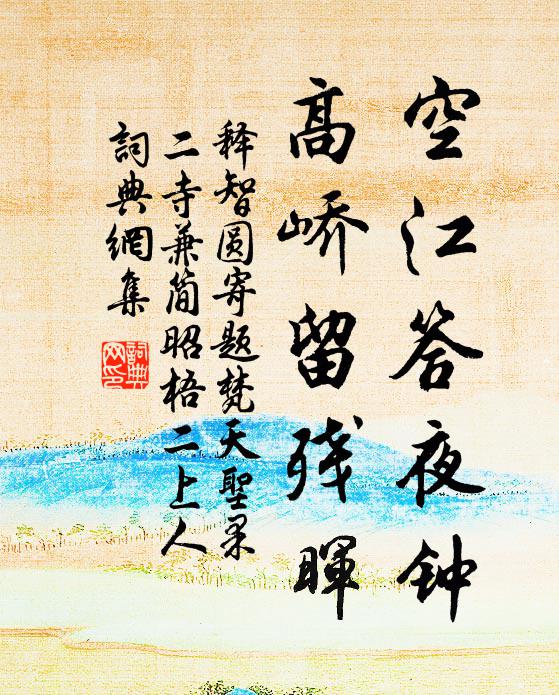 空江答夜钟
高峤留残暉
释智圆寄题梵天聖果
二寺兼简昭梧二上人
詞典網集
詞典
网印